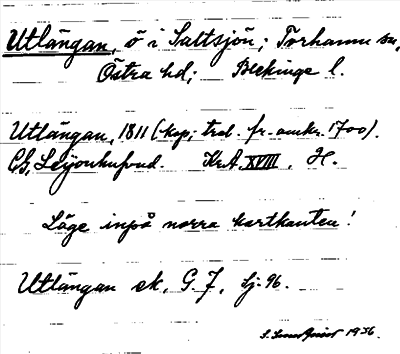 Utlängan, ö i Saltsjön; Torhamn sn,
Östra hd; Blekinge l.
Utlängan, 1811 (kop; trol. fr. omkr. 1700).
Leijonhufvud. KrA XVIII, H.
Läge inpå norra kartkanten!
Utlängan ek, G. 7, Sj. 96.
1936.